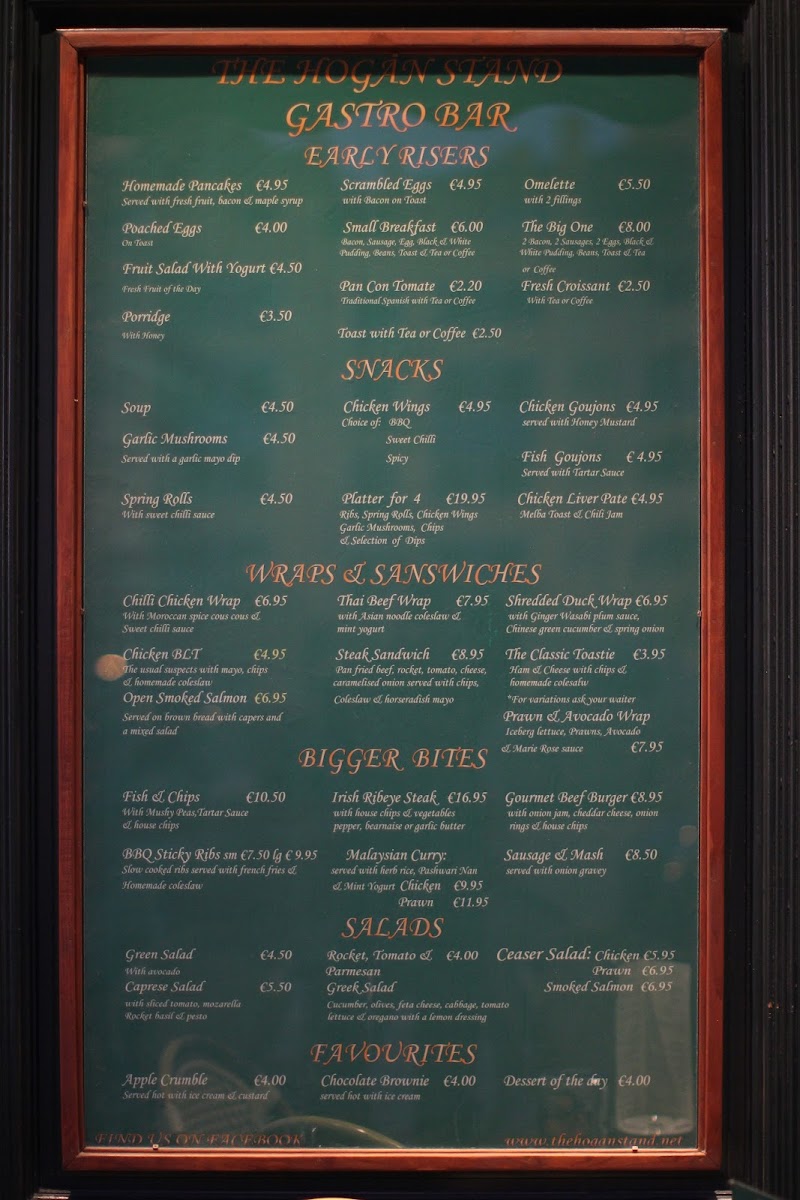 THE HOGAN STAND
GASTRO BAR
EARLY RISERS
Homemade Pancakes €4.95
Served with fresh fruit, bacon & maple syrup
Poached Eggs €4.00
On Toast
Fruit Salad With Yogurt €4.50
Fresh Fruit of the Day
Porridge €3.50
With Honey
Scrambled Eggs €4.95
with Bacon on Toast
Small Breakfast €6.00
Bacon, Sausage, Egg, Black & White
Pudding, Beans, Toast & Tea or Coffee
Pan Con Tomate €2.20
Traditional Spanish with Tea or Coffee
Toast with Tea or Coffee €2.50
Omelette €5.50
with 2 fillings
The Big One €8.00
2 Bacon, 2 Sausages, 2 Eggs, Black &
White Pudding, Beans, Toast & Tea
or Coffee
Fresh Croissant €2.50
With Tea or Coffee
SNACKS
Soup €4.50
Garlic Mushrooms €4.50
Served with a garlic mayo dip
Spring Rolls €4.50
With sweet chilli sauce
Chicken Wings €4.95
Choice of: BBQ
Sweet Chilli
Spicy
Platter for 4 €19.95
Ribs, Spring Rolls, Chicken Wings
Garlic Mushrooms, Chips
& Selection of Dips
Chicken Goujons €4.95
served with Honey Mustard
Fish Goujons € 4.95
Served with Tartar Sauce
Chicken Liver Pate €4.95
Melba Toast & Chili Jam
WRAPS & SANSWICHES
Chilli Chicken Wrap €6.95
With Moroccan spice cous cous &
Sweet chilli sauce
Chicken BLT €4.95
The usual suspects with mayo, chips
& homemade coleslaw
Open Smoked Salmon €6.95
Served on brown bread with capers and
a mixed salad
Thai Beef Wrap €7.95
with Asian noodle coleslaw &
mint yogurt
Steak Sandwich €8.95
Pan fried beef, rocket, tomato, cheese,
caramelised onion served with chips,
Coleslaw & horseradish mayo
Shredded Duck Wrap €6.95
with Ginger Wasabi plum sauce,
Chinese green cucumber & spring onion
The Classic Toastie €3.95
Ham & Cheese with chips &
homemade colesalw
*For variations ask your waiter
Prawn & Avocado Wrap
Iceberg lettuce, Prawns, Avocado
& Marie Rose sauce €7.95
BIGGER BITES
Fish & Chips €10.50
With Mushy Peas,Tartar Sauce
& house chips
BBQ Sticky Ribs sm €7.50 lg € 9.95
Slow cooked ribs served with french fries &
Homemade coleslaw
Irish Ribeye Steak €16.95
with house chips & vegetables
pepper, bearnaise or garlic butter
Malaysian Curry:
served with herb rice, Pashwari Nan
& Mint Yogurt Chicken €9.95
Prawn €11.95
Gourmet Beef Burger €8.95
with onion jam, cheddar cheese, onion
rings & house chips
Sausage & Mash €8.50
served with onion gravey
SALADS
Green Salad €4.50
With avocado
Caprese Salad €5.50
with sliced tomato, mozarella
Rocket basil & pesto
Rocket, Tomato & €4.00
Parmesan
Greek Salad
Cucumber, olives, feta cheese, cabbage, tomato
lettuce & oregano with a lemon dressing
Ceaser Salad: Chicken €5.95
Prawn €6.95
Smoked Salmon €6.95
FAVOURITES
Apple Crumble €4.00
Served hot with ice cream & custard
Chocolate Brownie €4.00
served hot with ice cream
Dessert of the day €4.00
FIND US ON FACEBOOK
www.thehoganstand.net